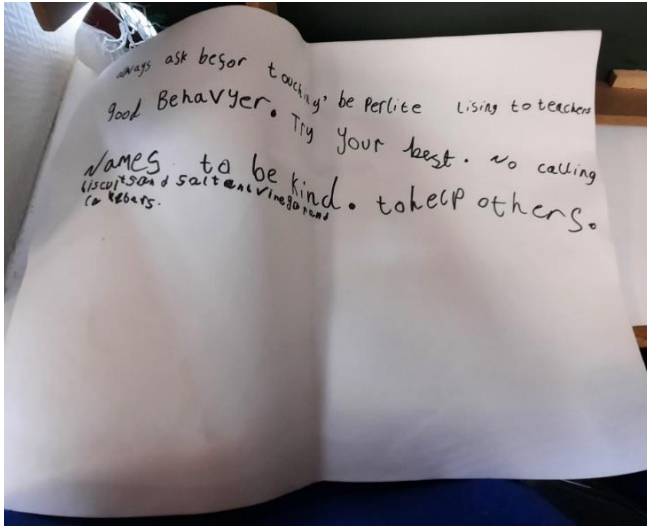 always ask besor touching, be Perlite Lising to teachers
good Behavyer. Try Your best. No calling
Names. to be kind. to help others.
biscuits and salt and vinegar and